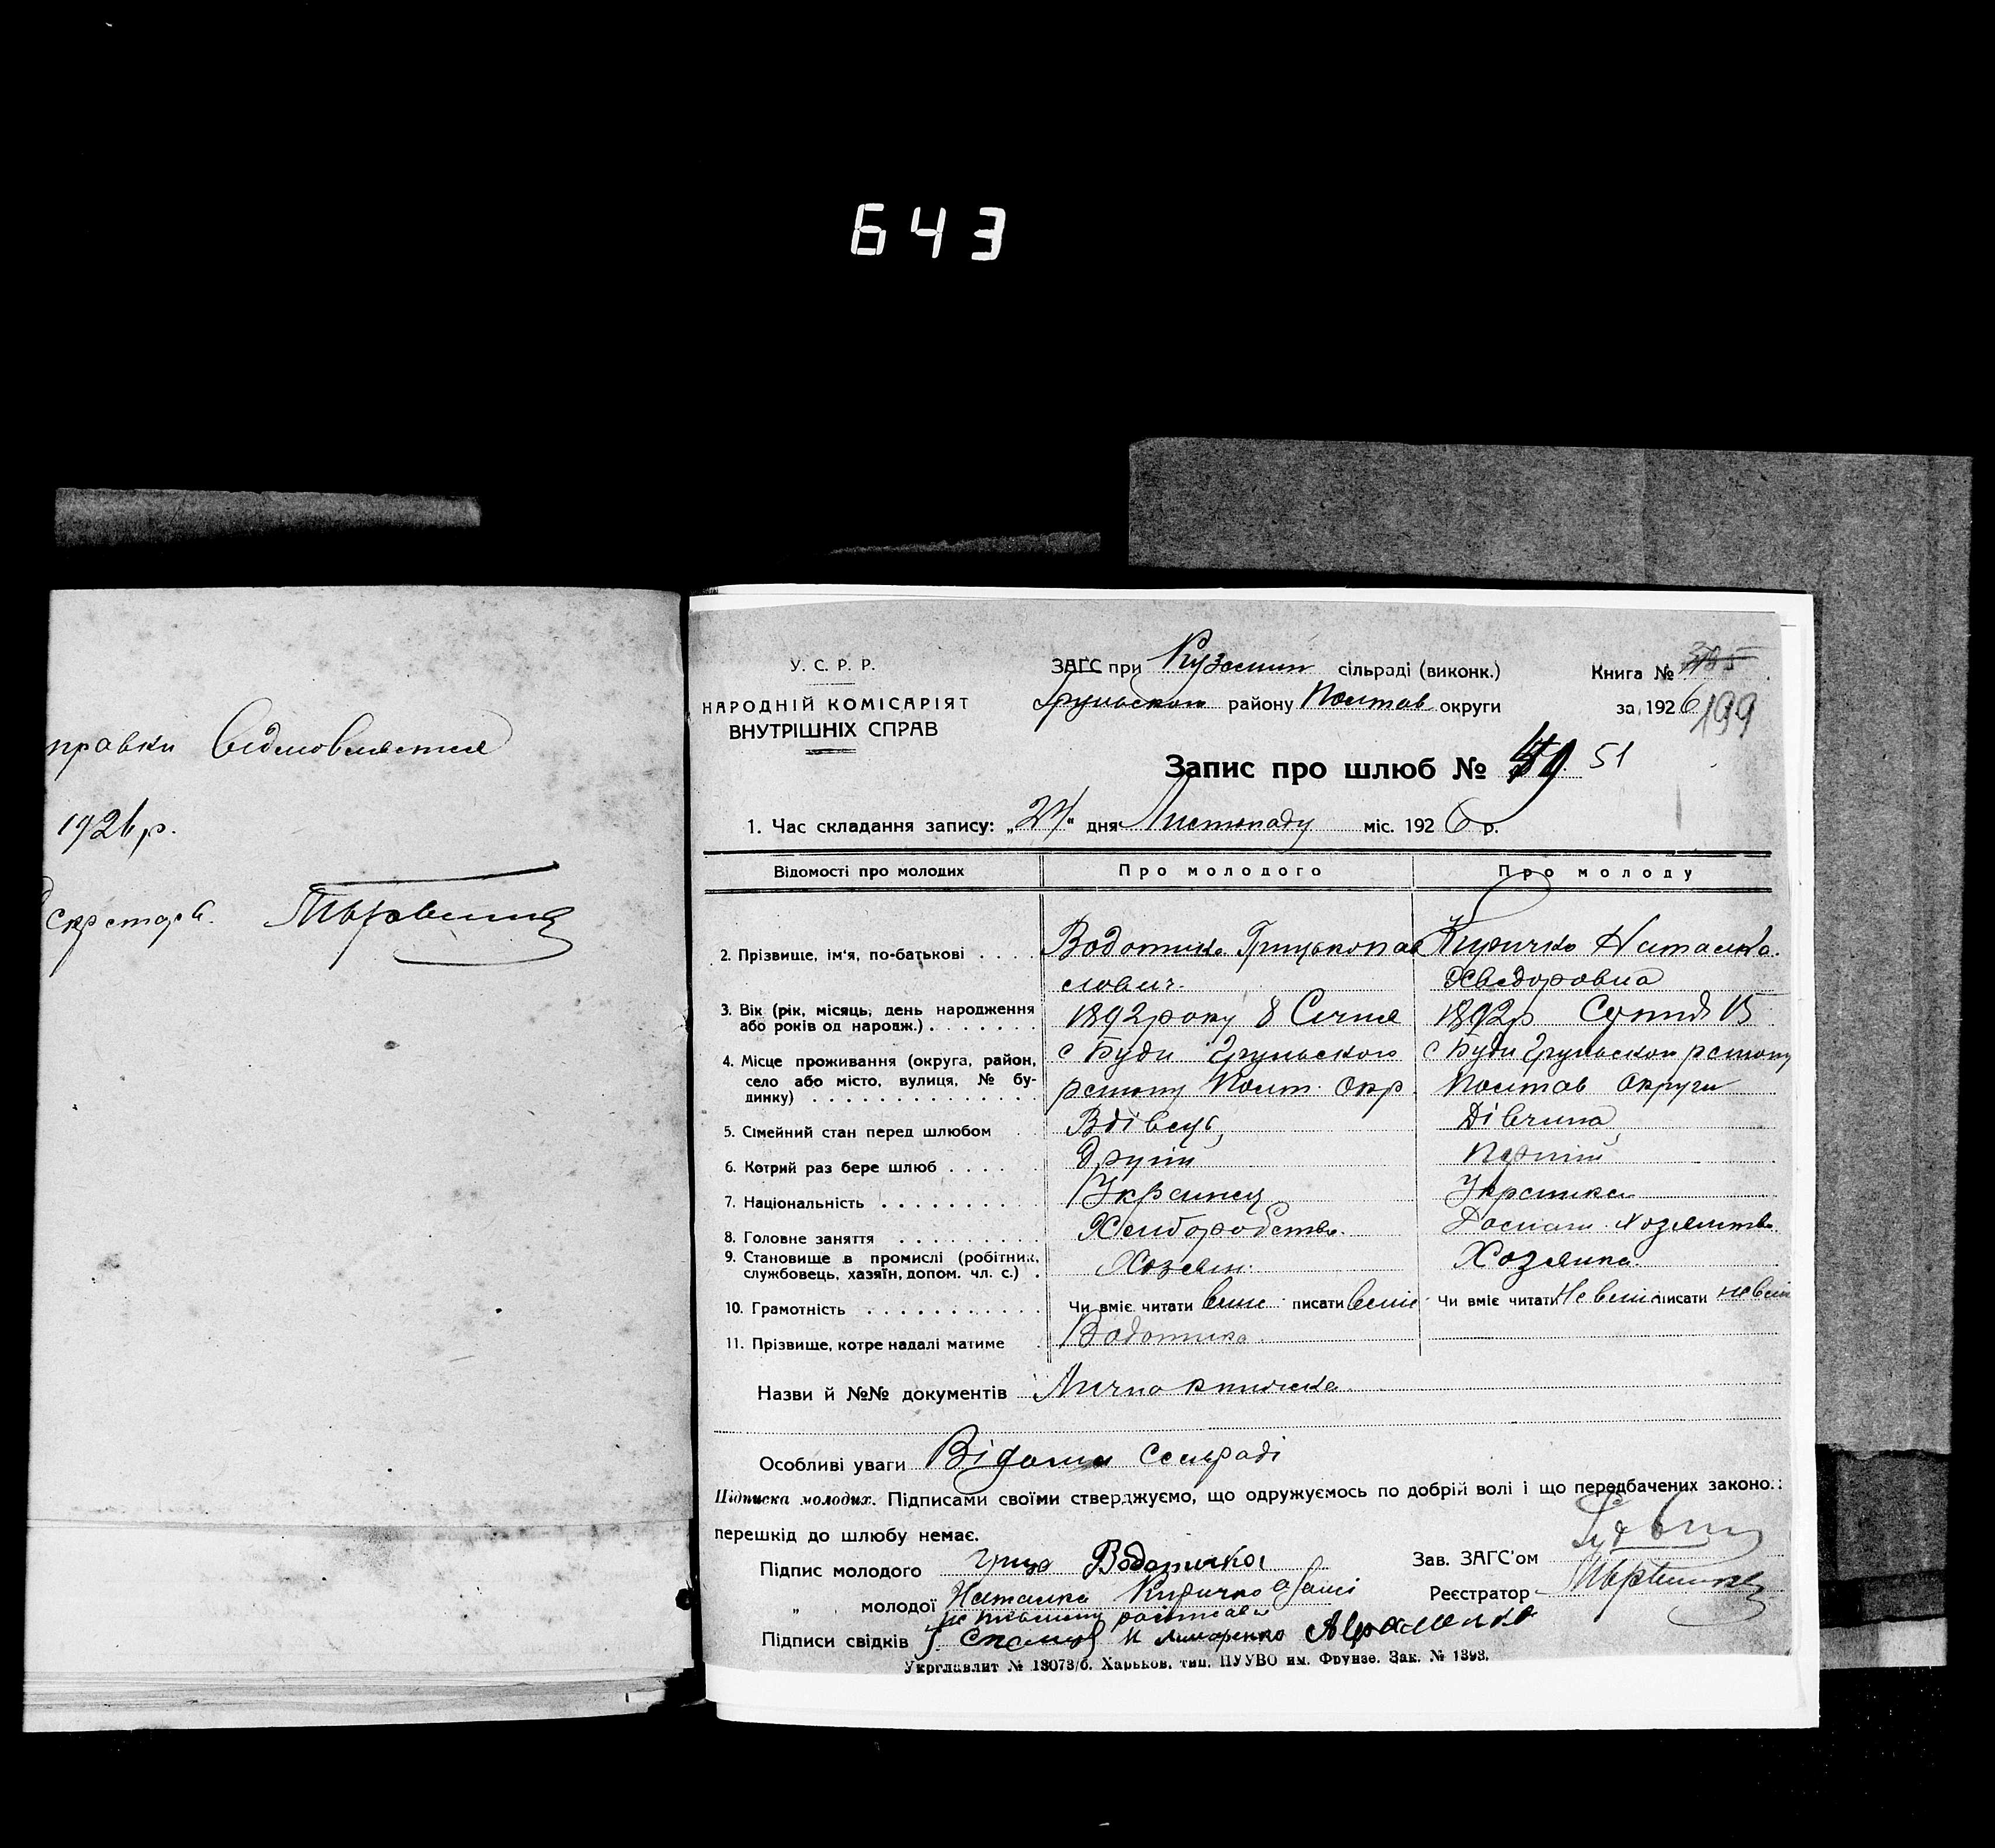 643
правки відмовляется
1926 р.
У. С. Р. Р.
НАРОДНІЙ КОМІСАРІЯТ
ВНУТРІШНІХ СПРАВ
ЗАГС при сільраді (виконк.)
Грунського району Полтав округи
Книга №
за 1926
199
Запис про шлюб № 51
1. Час складання запису: „ “ дня Листопаду міс. 1926 р.
Відомості про молодих
Про молодого
Про молоду
2. Прізвище, ім'я, по-батькові . . . .
Водотика Грицько Пав
слович.
Киричко Наталка
Хведоровна
3. Вік (рік, місяць, день народження
або років од народж.) . . . . . . .
1892 року 8 Січня
1892 р Серпня 15
4. Місце проживання (округа, район,
село або місто, вулиця, № бу-
динку) . . . . . . . . . . . . . .
с Буди Грунського
району Полт. Окр.
с Буди Грунського району
Полтав Округи
5. Сімейний стан перед шлюбом
Вдівець
Дівчина
6. Котрий раз бере шлюб . . . . .
Другий
Перший
7. Національність . . . . . . . . .
Українец
Українка
8. Головне заняття . . . . . . . . .
Хлиборобство.
Хозяйство
9. Становище в промислі (робітник,
службовець, хазяїн, допом. чл. с.) .
Хозяин.
Хозяика.
10. Грамотність . . . . . . . . . . .
Чи вміє читати вміє писати вміє
Чи вміє читати Не вміє писати не вміє
11. Прізвище, котре надалі матиме
Водотика
Назви й №№ документів Лична книжка
Особливі уваги Відомі Сельраді
Підписка молодих. Підписами своїми стверджуємо, що одружуємось по добрій волі і що передбачених законо..
перешкід до шлюбу немає.
Підпис молодого Водотика
„ молодої Наталка Киричко
Зав. ЗАГС'ом
Реєстратор
Підписи свідків
Укрглавлит № 13073/б. Харьков, тип. ПУУВО им. Фрунзе. Зак. № 1393.